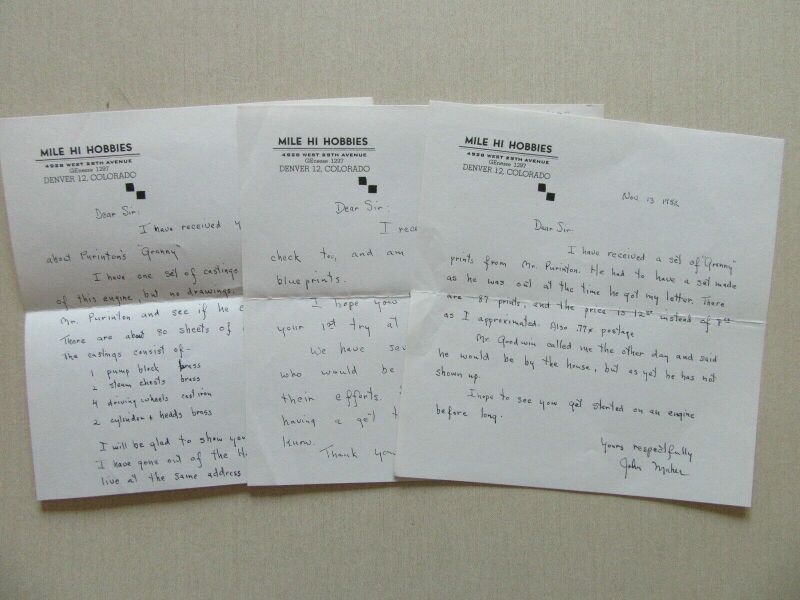 MILE HI HOBBIES
4928 WEST 29TH AVENUE
GEnesee 1297
DENVER 12, COLORADO
Dear Sir:
I have received
about Purinton's "Granny"
I have one set of castings
of this engine, but no drawings.
Mr. Purinton and see if he
There are about 80 sheets of
The castings consist of-
1 pump block brass
2 steam chests brass
4 driving wheels cast iron
2 cylinder + heads brass
I will be glad to show you
I have gone out of the
live at the same address
MILE HI HOBBIES
4928 WEST 29TH AVENUE
GEnesee 1297
DENVER 12, COLORADO
Dear Sir:
I
check too, and am
blueprints.
I hope you
your 1st try at
We have
who would be
their efforts.
having a get
know.
Thank you
MILE HI HOBBIES
4928 WEST 29TH AVENUE
GEnesee 1297
DENVER 12, COLORADO
Nov. 13
Dear Sir:
I have received a set of "Granny"
prints from Mr. Purinton. He had to have a set made
as he was out at the time he got my letter. There
are 87 prints, and the price is instead of
as I approximated. Also .77¢ postage
Mr. Goodwin called me the other day and said
he would be by the house, but as yet he has not
shown up.
I hope to see you get started on an engine
before long.
Yours respectfully
John Maher